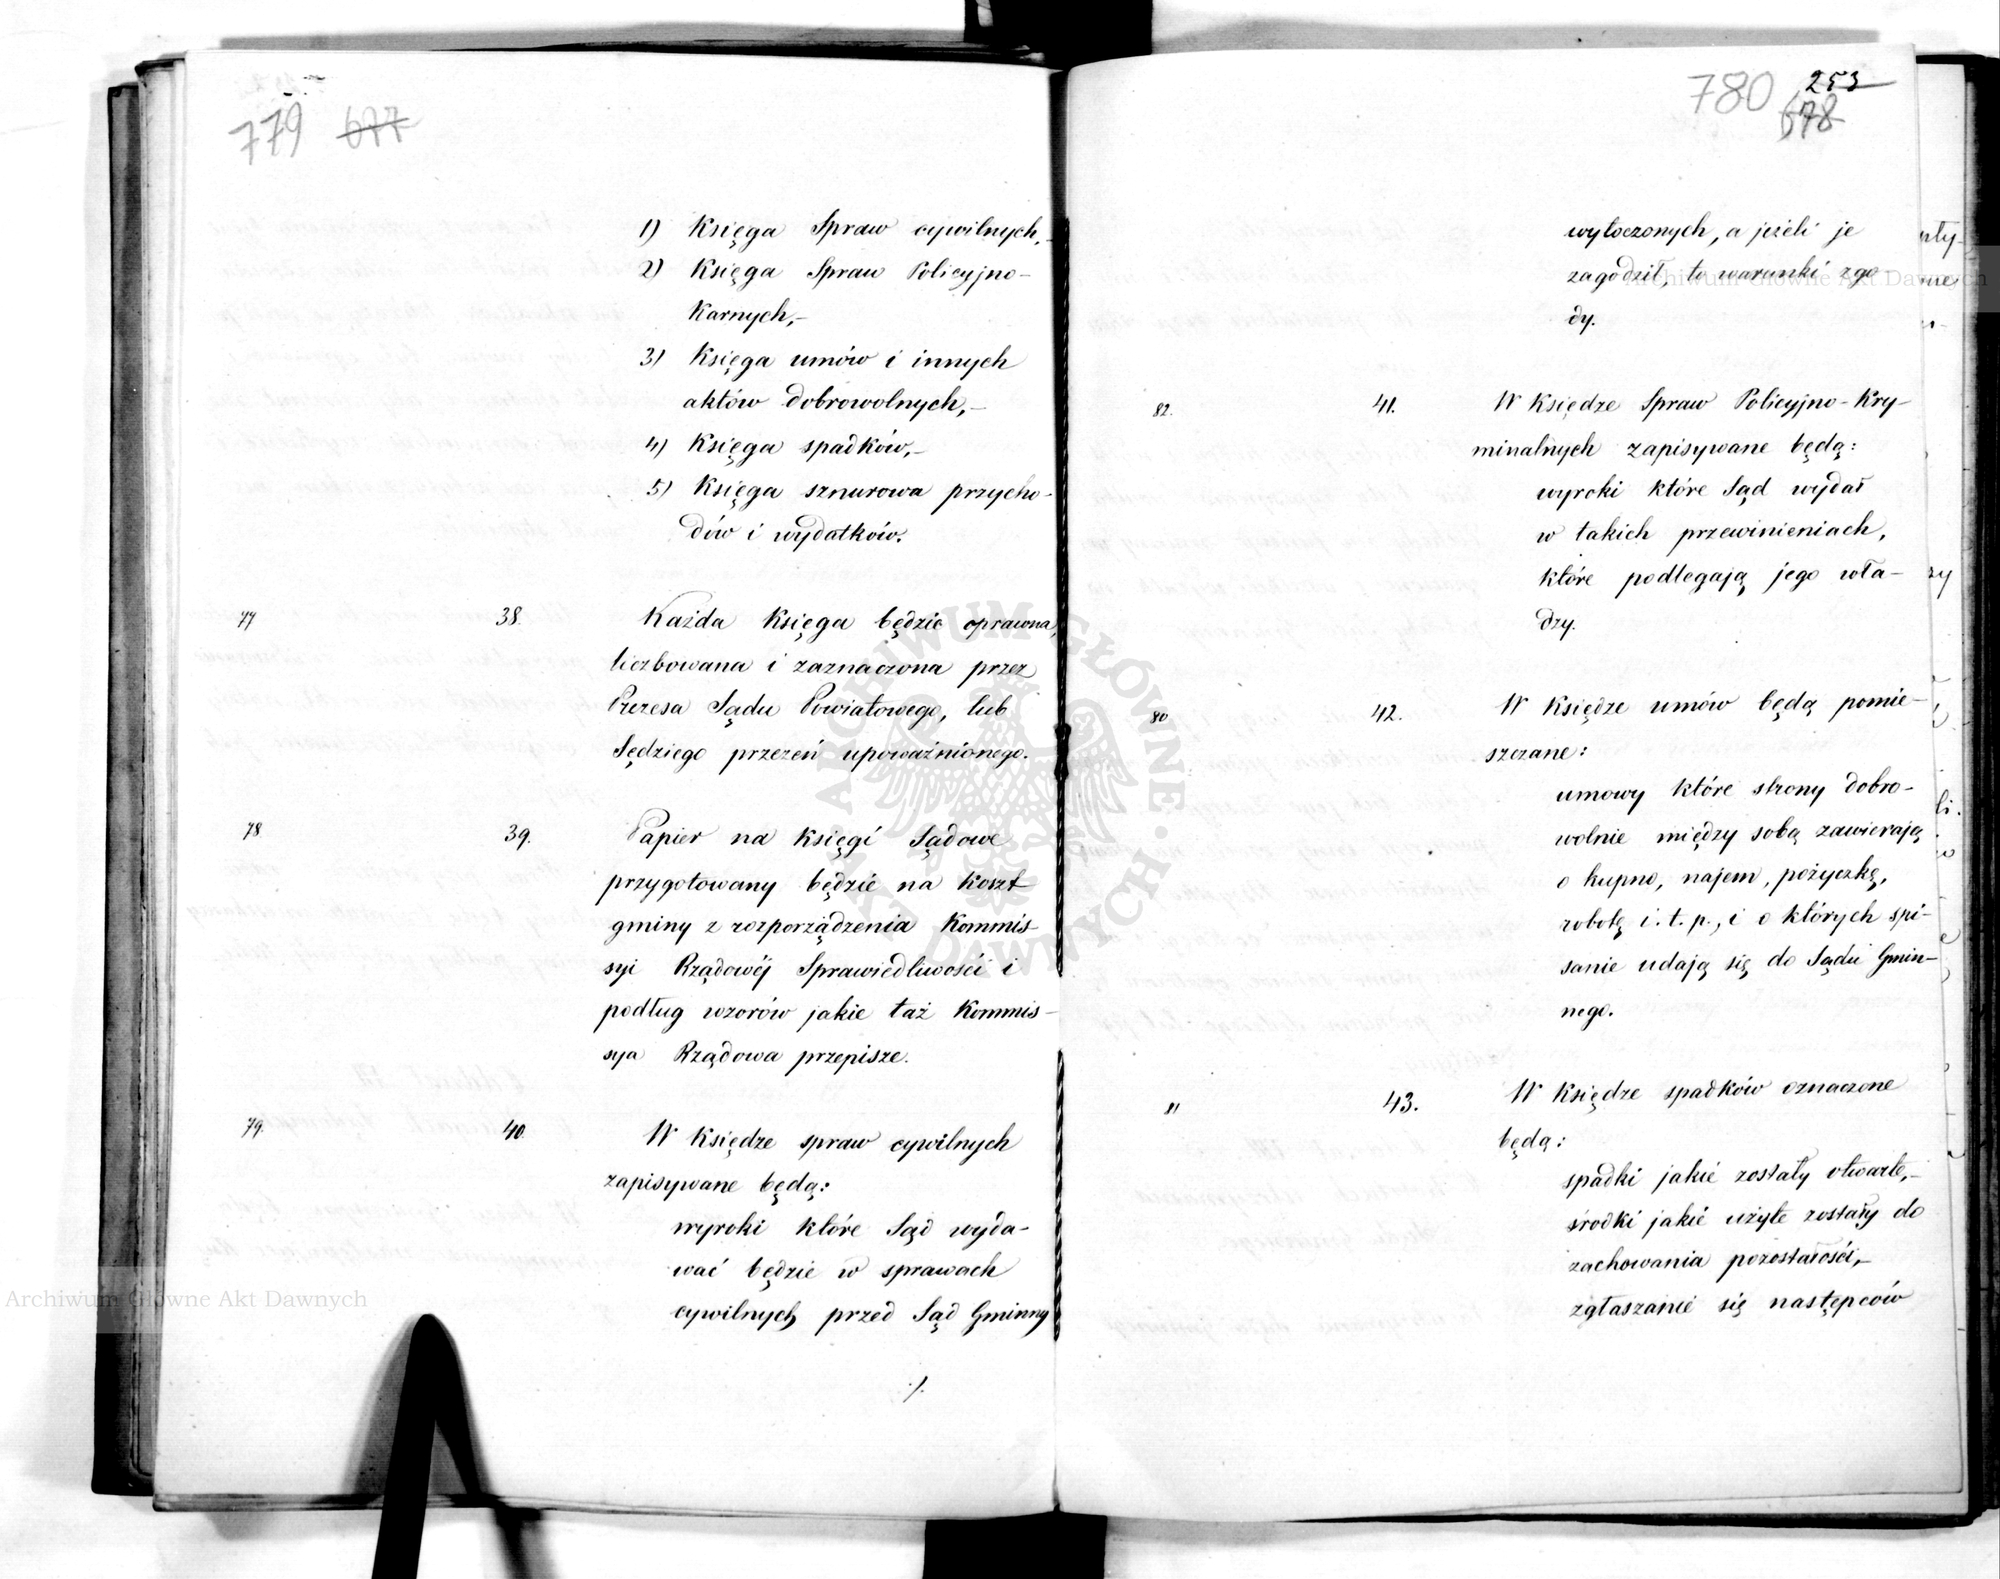 779 677
1) Księga Spraw cywilnych,-
2) Księga Spraw Policyjno-
Karnych,-
3) Księga umów i innych
aktów dobrowolnych,-
4) Księga spadków,-
5) Księga sznurowa przycho-
dów i wydatków.
77 38. Każda Księga będzie oprawna,
liczbowana i zaznaczona przez
Prezesa Sądu Powiatowego, lub
Sędziego przezeń upoważnionego.
78 39. Papier na Księgi Sądowe
przygotowany będzie na koszt
gminy z rozporządzenia Kommis-
syi Rządowéj Sprawiedliwości i
podług wzorów jakie taż Kommis-
sya Rządowa przepisze.
79. 40. W Księdze spraw cywilnych
zapisywane będą:
wyroki które Sąd wyda-
wać będzie w sprawach
cywilnych przed Sąd Gminny
./.
780 253
678
wytoczonych, a jeżeli je
zagodził, to warunki zgo-
dy.
82. 41. W Księdze Spraw Policyjno-Kry-
minalnych zapisywane będą:
wyroki które Sąd wydał
w takich przewinieniach,
które podlegają jego wła-
dzy.
80 42. W Księdze umów będą pomie-
szczane:
umowy które strony dobro-
wolnie między sobą zawierają
o kupno, najem, pożyczkę,
robotę i. t. p., i o których spi-
sanie udają się do Sądu Gmin-
nego.
81 43. W Księdze spadków oznaczone
będą:
spadki jakie zostały otwarte,-
środki jakie użyte zostały do
zachowania pozostałości,-
zgłaszanie się następców
Archiwum Główne Akt Dawnych
Archiwum Główne Akt Dawnych
ARCHIWUM GŁÓWNE AKT DAWNYCH